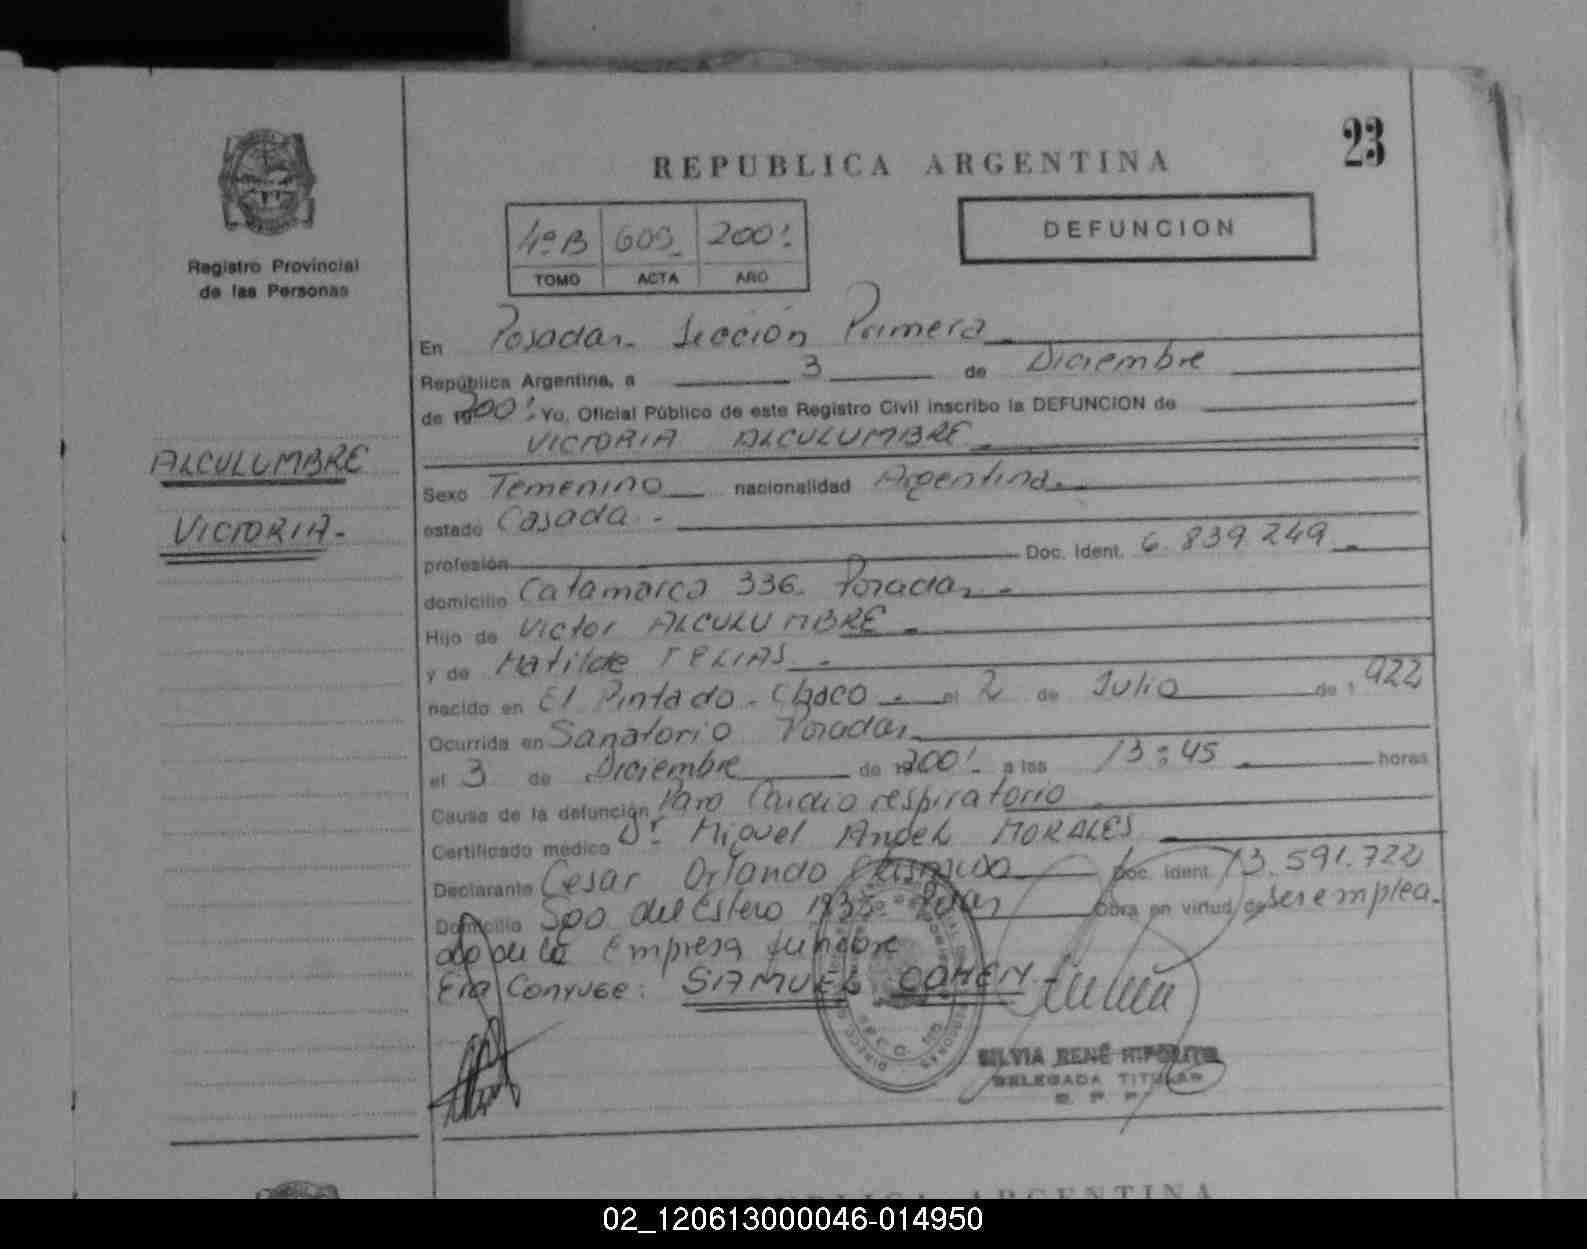 23
REPUBLICA ARGENTINA
4º B 609 2001
TOMO ACTA AÑO
DEFUNCION
Registro Provincial
de las Personas
ALCULUMBRE
VICTORIA.-
En Posadas. Sección Primera
República Argentina, a 3 de Diciembre
de 2001. Yo, Oficial Público de este Registro Civil inscribo la DEFUNCION de
VICTORIA ALCULUMBRE
Sexo Femenino nacionalidad Argentina.-
estado Casada.-
profesión Doc. Ident. 6.839.249
domicilio Catamarca 336. Posadas.-
Hijo de Victor ALCULUMBRE.-
y de Matilde TELIAS.-
nacido en El Pintado - Chaco.- el 2 de Julio de 1922
Ocurrida en Sanatorio Posadas
el 3 de Diciembre de 2001. a las 13:45 horas
Causa de la defunción Paro Cardio respiratorio
Certificado médico Dr. Miguel Angel MORALES
Declarante Cesar Orlando Doc. Ident. 13.591.722
Domicilio Sgo del Estero 1935 Pdas Obra en virtud de ser emplea-
do de la Empresa fúnebre
Era Conyuge: SAMUEL COHEN.-
SILVIA RENÉ HIPOLITO
DELEGADA TITULAR
R. P. P.
REPUBLICA ARGENTINA
02_120613000046-014950